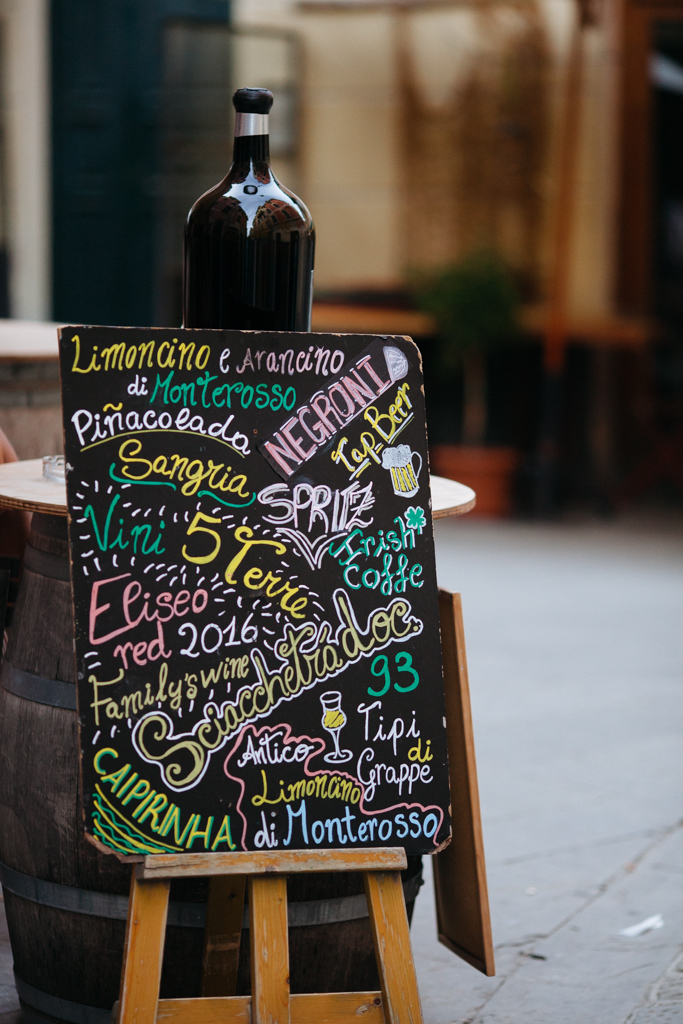 Limoncino e Arancino
di Monterosso
NEGRONI
Piñacolada
Tap Beer
Sangria
SPRITZ
Vini 5 Terre
Irish
Coffe
Eliseo
red 2016
Family's wine
Sciacchetrà doc.
93
Antico
Limoncino
di Monterosso
Tipi
di
Grappe
CAIPIRINHA